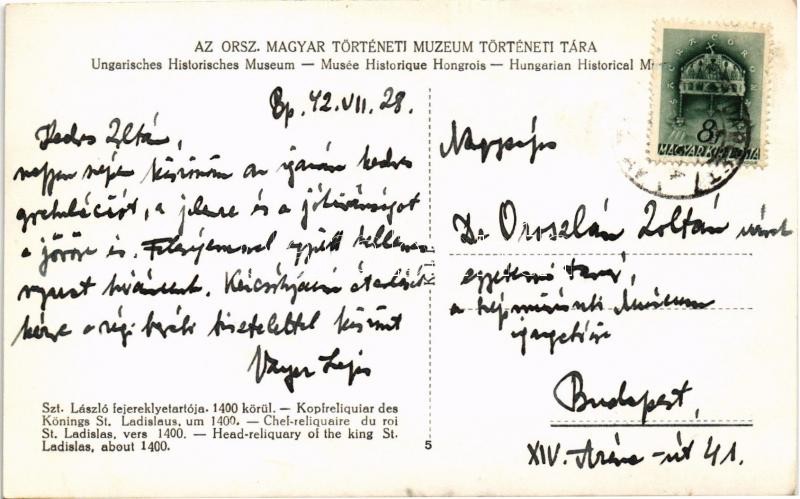 AZ ORSZ. MAGYAR TÖRTÉNETI MUZEUM TÖRTÉNETI TÁRA
Ungarisches Historisches Museum — Musée Historique Hongrois — Hungarian Historical M
Bp. 42. VII. 28.
Kedves Zoltán,
nagyon szépen köszönöm az igazán kedves
gratulációt, a jelenre és a jókívánságot
a jövőre is. Feleségemmel együtt kellemes
nyarat kívánunk. Kézcsókjaim átadását
kérve a régi baráti tisztelettel köszönt
Vayer Lajos
Nagyságos
Dr Oroszlán Zoltán úrnak
egyetemi tanár,
a Szépművészeti Múzeum
igazgatója
Budapest,
XIV. Aréna-út 41.
SACRA CORONA
8
MAGYAR KIR. POSTA
Szt. László fejereklyetartója. 1400 körül. — Kopfreliquiar des
Könings St. Ladislaus, um 1400. — Chef-reliquaire du roi
St. Ladislas, vers 1400. — Head-reliquary of the king St.
Ladislas, about 1400.
5